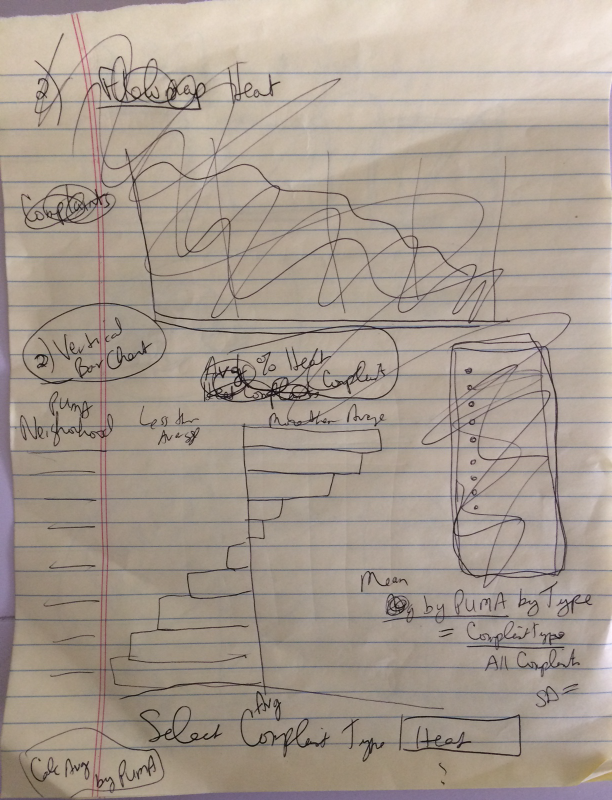 2)
Heat
Complaints
2) Vertical
Bar Chart
Avg % Heat
Complaints
PUMA
Neighborhood
Less than
Average
More than Average
Mean
by PUMA by Type
= Complaint Type
All Complaints
SD =
Avg
Select Complaint Type Heat
?
Calc Avg
by PUMA